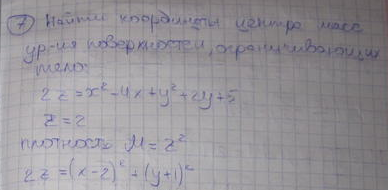 7 Найти координаты центра масс
ур-ия поверхностей, ограничивающих
тело:
2z = x² - 4x + y² + 2y + 5
z = 2
плотность M = z²
2z = (x-2)² + (y+1)²